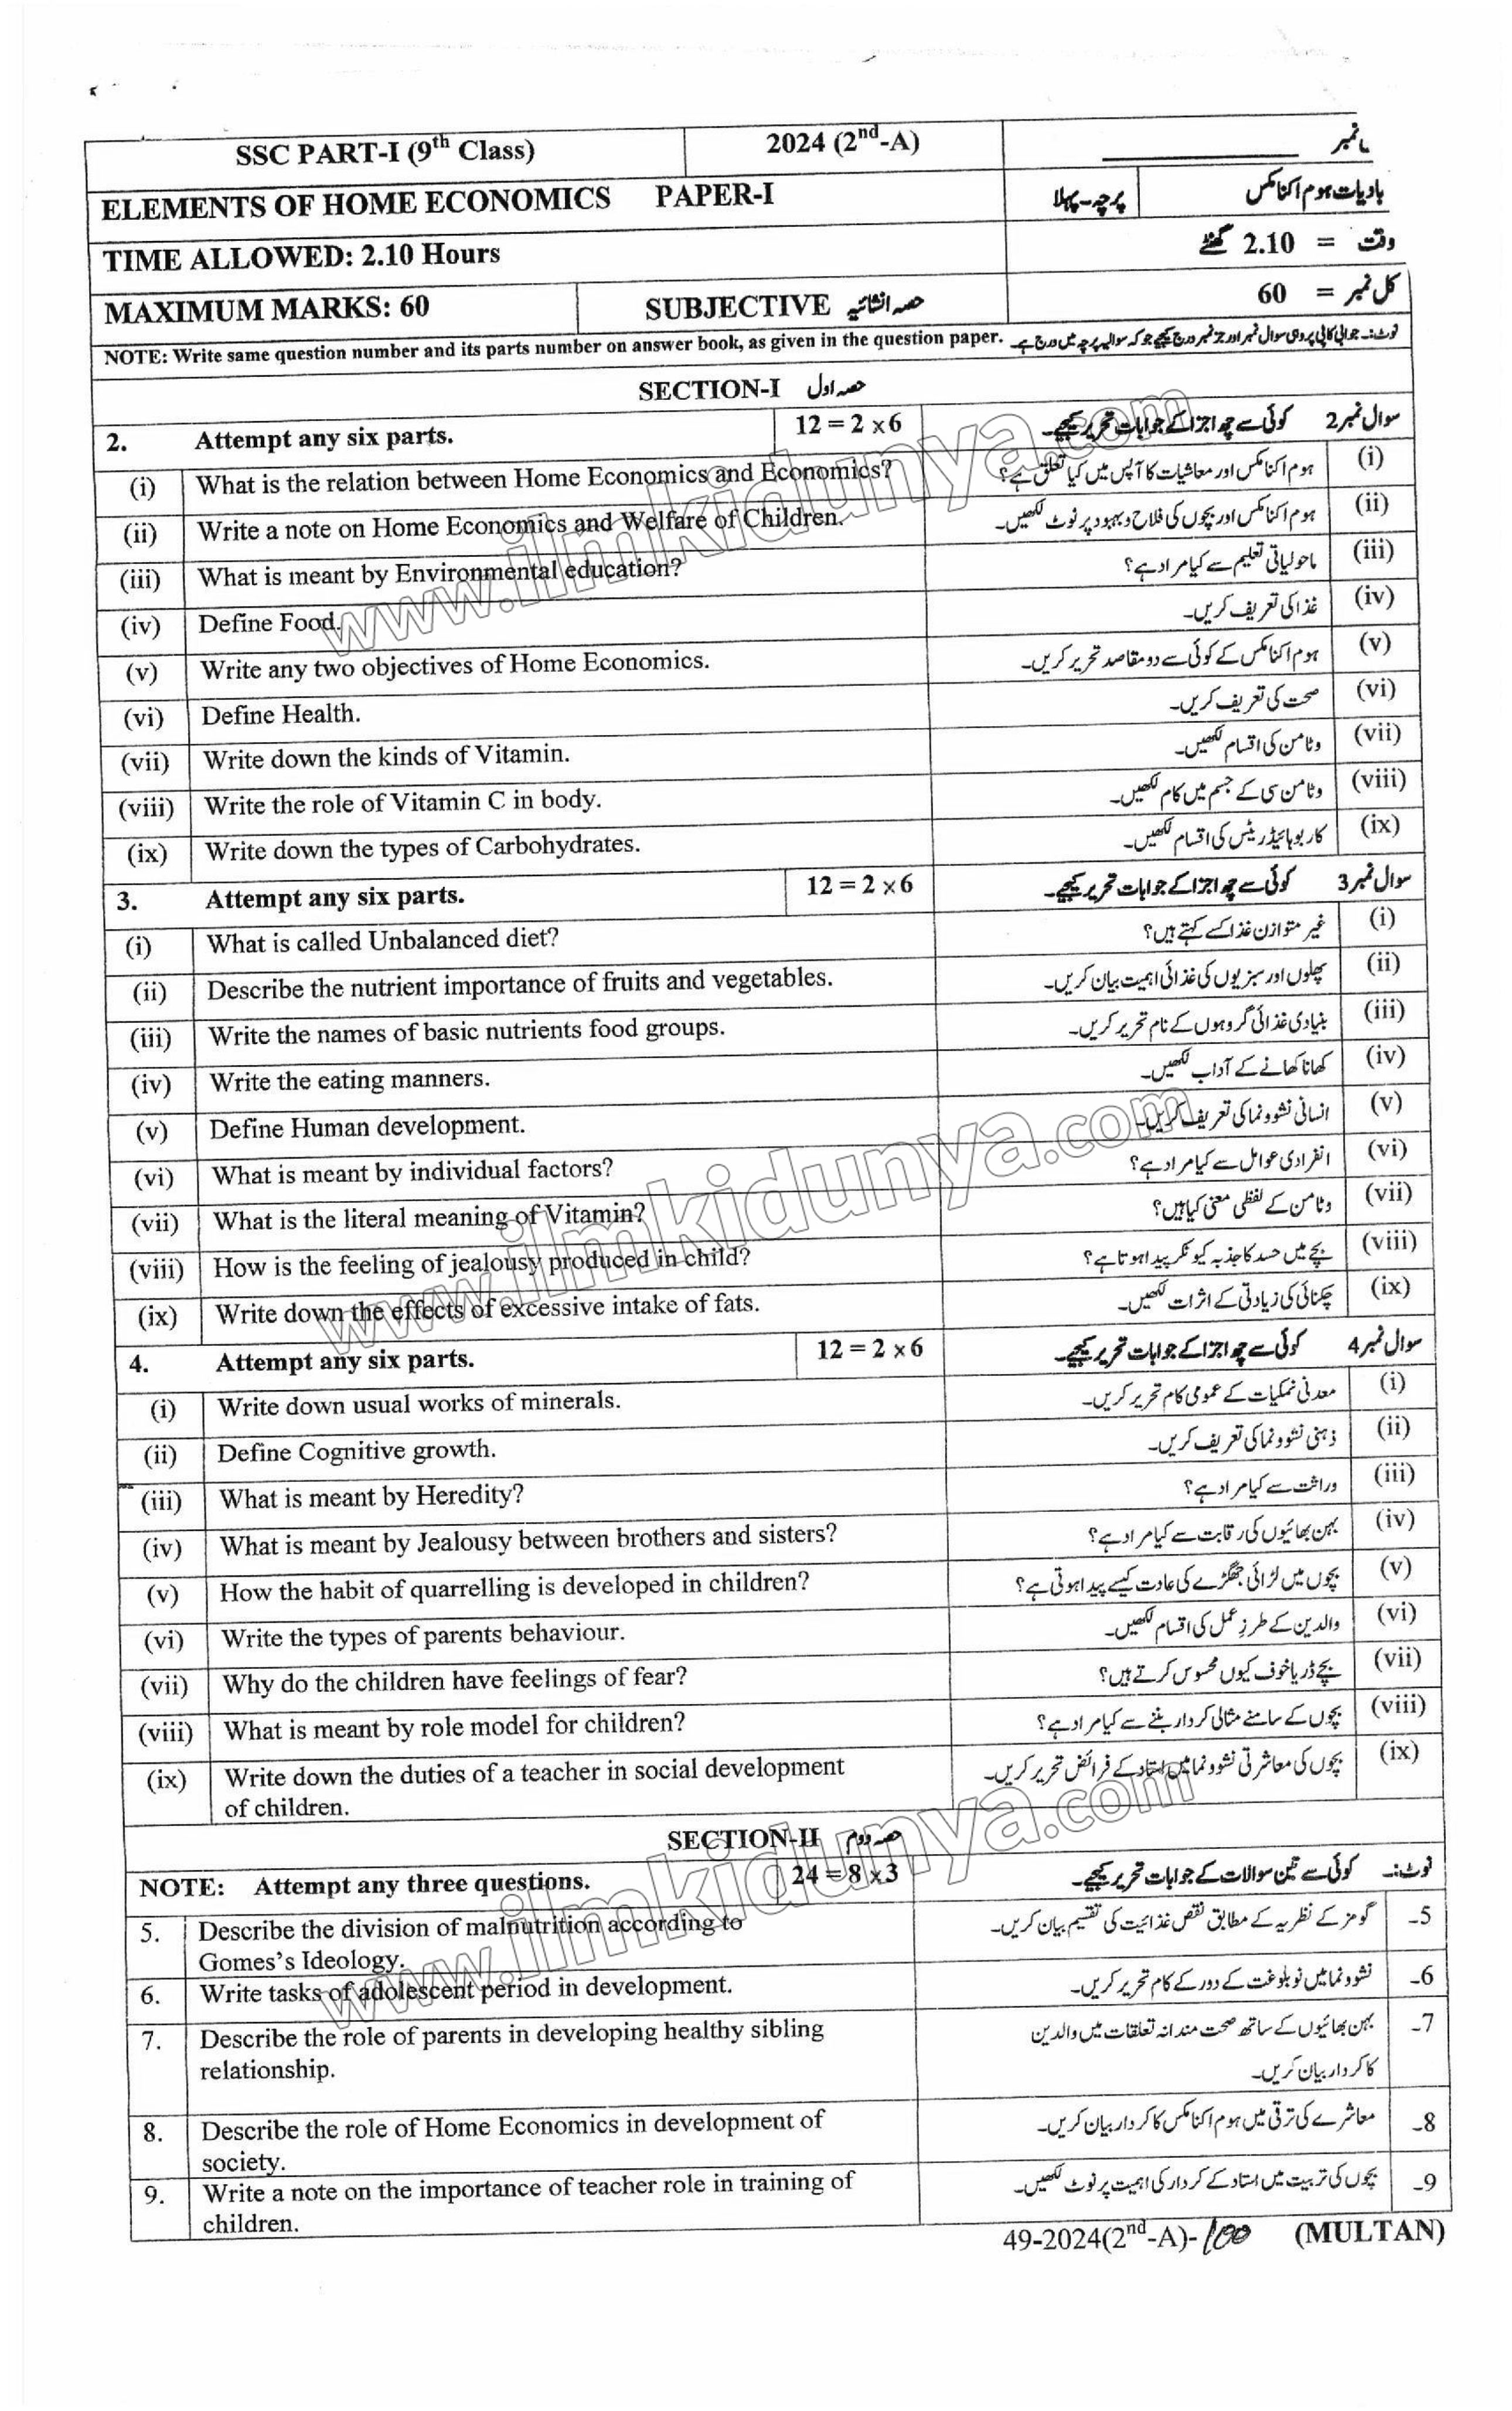 SSC PART-I (9th Class) 2024 (2nd-A) نمبر
ELEMENTS OF HOME ECONOMICS PAPER-I پرچہ-پہلا ہوم اکنامکس
TIME ALLOWED: 2.10 Hours وقت = 2.10 گھنٹے
MAXIMUM MARKS: 60 SUBJECTIVE حصہ انشائیہ کل نمبر = 60
NOTE: Write same question number and its parts number on answer book, as given in the question paper. نوٹ:۔ جوابی کاپی پر وہی سوال نمبر اور جز نمبر درج کیجیے جو کہ سوالیہ پرچہ میں درج ہے۔
SECTION-I حصہ اول
2. Attempt any six parts. 12 = 2 x 6 سوال نمبر 2 کوئی سے چھ اجزا کے جوابات تحریر کیجیے۔
(i) What is the relation between Home Economics and Economics? ہوم اکنامکس اور معاشیات کا آپس میں کیا تعلق ہے؟ (i)
(ii) Write a note on Home Economics and Welfare of Children. ہوم اکنامکس اور بچوں کی فلاح و بہبود پر نوٹ لکھیں۔ (ii)
(iii) What is meant by Environmental education? ماحولیاتی تعلیم سے کیا مراد ہے؟ (iii)
(iv) Define Food. غذا کی تعریف کریں۔ (iv)
(v) Write any two objectives of Home Economics. ہوم اکنامکس کے کوئی سے دو مقاصد تحریر کریں۔ (v)
(vi) Define Health. صحت کی تعریف کریں۔ (vi)
(vii) Write down the kinds of Vitamin. وٹامن کی اقسام لکھیں۔ (vii)
(viii) Write the role of Vitamin C in body. وٹامن سی کے جسم میں کام لکھیں۔ (viii)
(ix) Write down the types of Carbohydrates. کاربوہائیڈریٹس کی اقسام لکھیں۔ (ix)
3. Attempt any six parts. 12 = 2 x 6 سوال نمبر 3 کوئی سے چھ اجزا کے جوابات تحریر کیجیے۔
(i) What is called Unbalanced diet? غیر متوازن غذا کسے کہتے ہیں؟ (i)
(ii) Describe the nutrient importance of fruits and vegetables. پھلوں اور سبزیوں کی غذائی اہمیت بیان کریں۔ (ii)
(iii) Write the names of basic nutrients food groups. بنیادی غذائی گروہوں کے نام تحریر کریں۔ (iii)
(iv) Write the eating manners. کھانا کھانے کے آداب لکھیں۔ (iv)
(v) Define Human development. انسانی نشوونما کی تعریف کریں۔ (v)
(vi) What is meant by individual factors? انفرادی عوامل سے کیا مراد ہے؟ (vi)
(vii) What is the literal meaning of Vitamin? وٹامن کے لفظی معنی کیا ہیں؟ (vii)
(viii) How is the feeling of jealousy produced in child? بچے میں حسد کا جذبہ کیونکر پیدا ہوتا ہے؟ (viii)
(ix) Write down the effects of excessive intake of fats. چکنائی کی زیادتی کے اثرات لکھیں۔ (ix)
4. Attempt any six parts. 12 = 2 x 6 سوال نمبر 4 کوئی سے چھ اجزا کے جوابات تحریر کیجیے۔
(i) Write down usual works of minerals. معدنی نمکیات کے عمومی کام تحریر کریں۔ (i)
(ii) Define Cognitive growth. ذہنی نشوونما کی تعریف کریں۔ (ii)
(iii) What is meant by Heredity? وراثت سے کیا مراد ہے؟ (iii)
(iv) What is meant by Jealousy between brothers and sisters? بہن بھائیوں کی رقابت سے کیا مراد ہے؟ (iv)
(v) How the habit of quarrelling is developed in children? بچوں میں لڑائی جھگڑے کی عادت کیسے پیدا ہوتی ہے؟ (v)
(vi) Write the types of parents behaviour. والدین کے طرزِ عمل کی اقسام لکھیں۔ (vi)
(vii) Why do the children have feelings of fear? بچے ڈر یا خوف کیوں محسوس کرتے ہیں؟ (vii)
(viii) What is meant by role model for children? بچوں کے سامنے مثالی کردار بننے سے کیا مراد ہے؟ (viii)
(ix) Write down the duties of a teacher in social development بچوں کی معاشرتی نشوونما میں استاد کے فرائض تحریر کریں۔ (ix)
of children.
SECTION-II حصہ دوم
NOTE: Attempt any three questions. 24 = 8 x 3 نوٹ:۔ کوئی سے تین سوالات کے جوابات تحریر کیجیے۔
5. Describe the division of malnutrition according to گومز کے نظریہ کے مطابق نقص غذائیت کی تقسیم بیان کریں۔ -5
Gomes's Ideology.
6. Write tasks of adolescent period in development. نشوونما میں نو بلوغت کے دور کے کام تحریر کریں۔ -6
7. Describe the role of parents in developing healthy sibling بہن بھائیوں کے ساتھ صحت مندانہ تعلقات میں والدین -7
relationship. کا کردار بیان کریں۔
8. Describe the role of Home Economics in development of معاشرے کی ترقی میں ہوم اکنامکس کا کردار بیان کریں۔ -8
society.
9. Write a note on the importance of teacher role in training of بچوں کی تربیت میں استاد کے کردار کی اہمیت پر نوٹ لکھیں۔ -9
children.
49-2024(2nd-A)-100 (MULTAN)
www.ilmkidunya.com
www.ilmkidunya.com
www.ilmkidunya.com